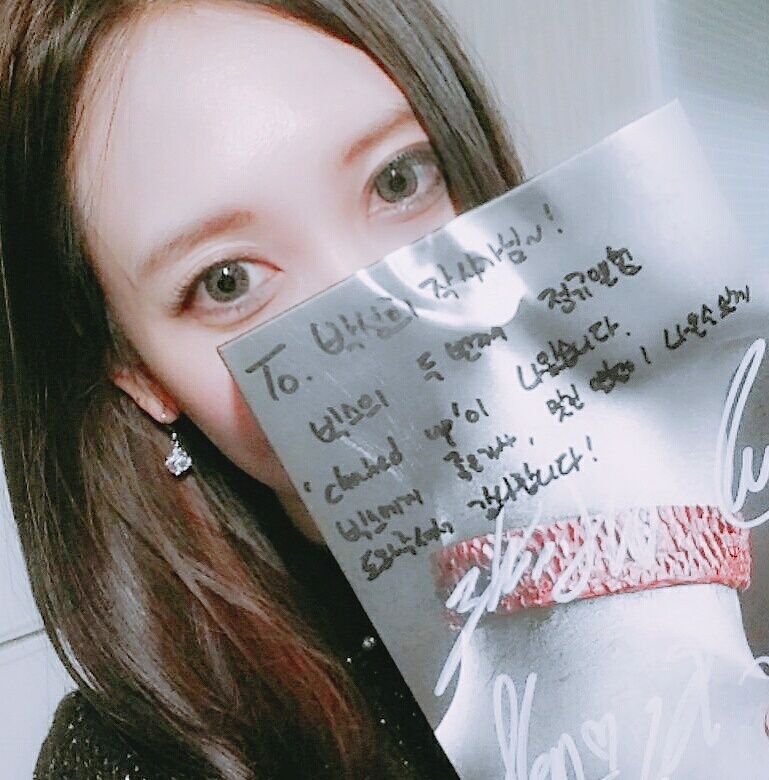 To. 작사가님~!
빅스의 두 번째 정규앨범
'chained up'이 나왔습니다.
빅스에게 좋은가사, 멋진 앨범이 나올수있게
도와주셔서 감사합니다!
Ken♡